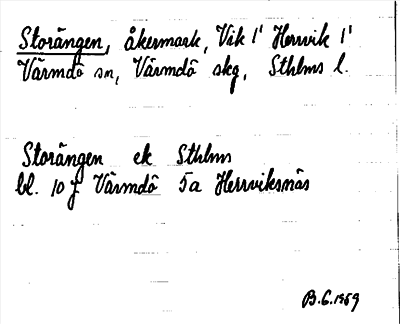 Storängen, åkermark, Vik 1' Herrvik 1'
Värmdö sn, Värmdö skg, Sthlms l.
Storängen ek Sthlms
bl. 10 J Värmdö 5a Herrviksnäs
B.G. 1959